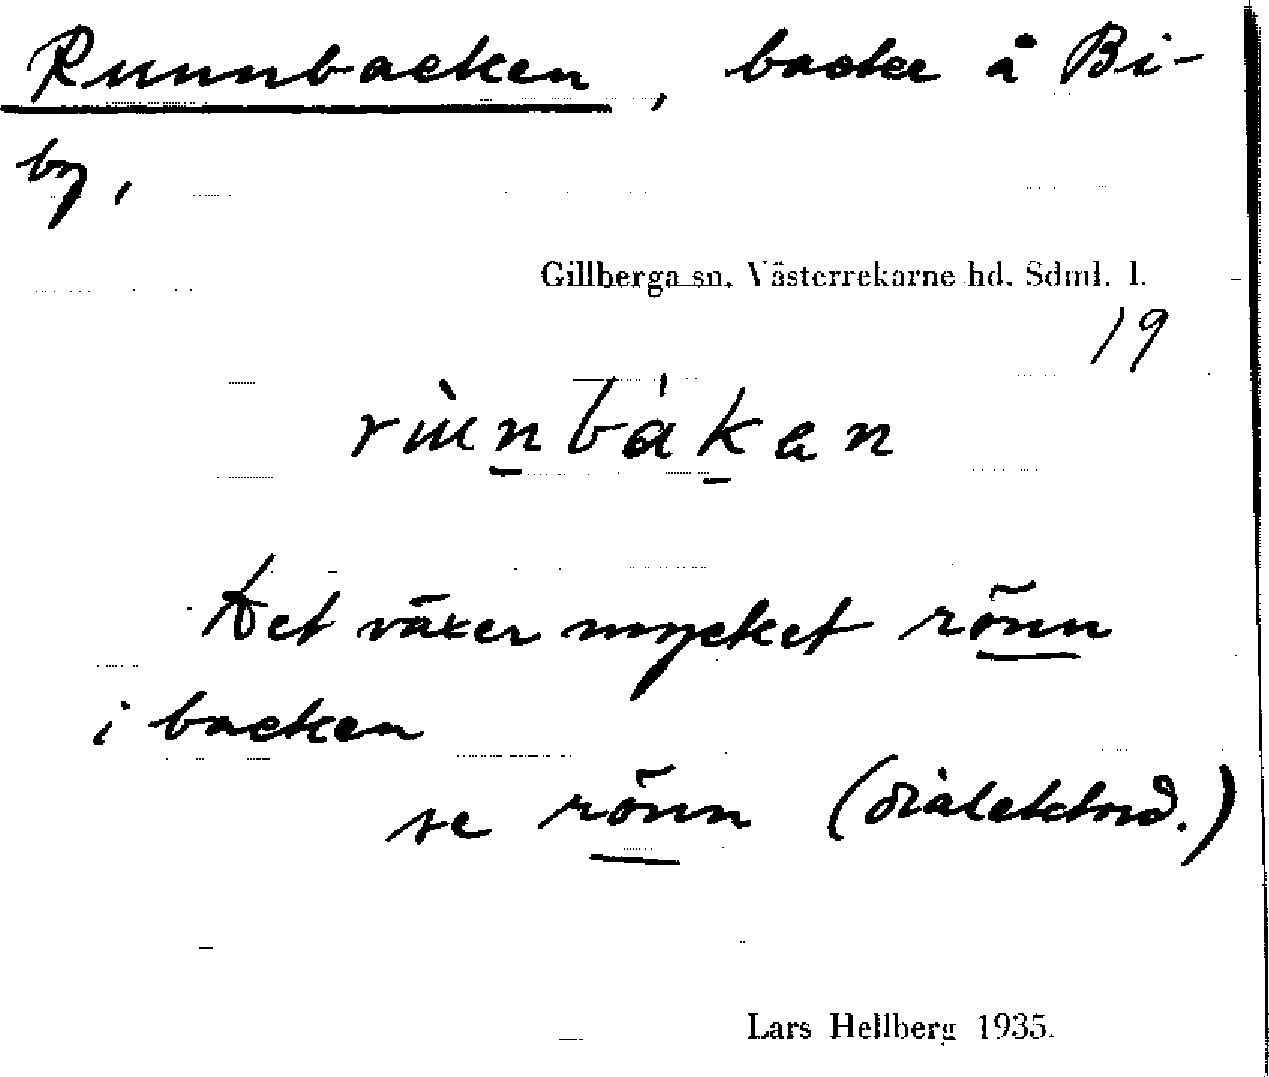 Runnbacken, backe å Bi-
by,
Gillberga sn. Västerrekarne hd. Sdml. l.
19
Det växer mycket rönn
i backen
se rönn (dialektord.)
Lars Hellberg 1935.